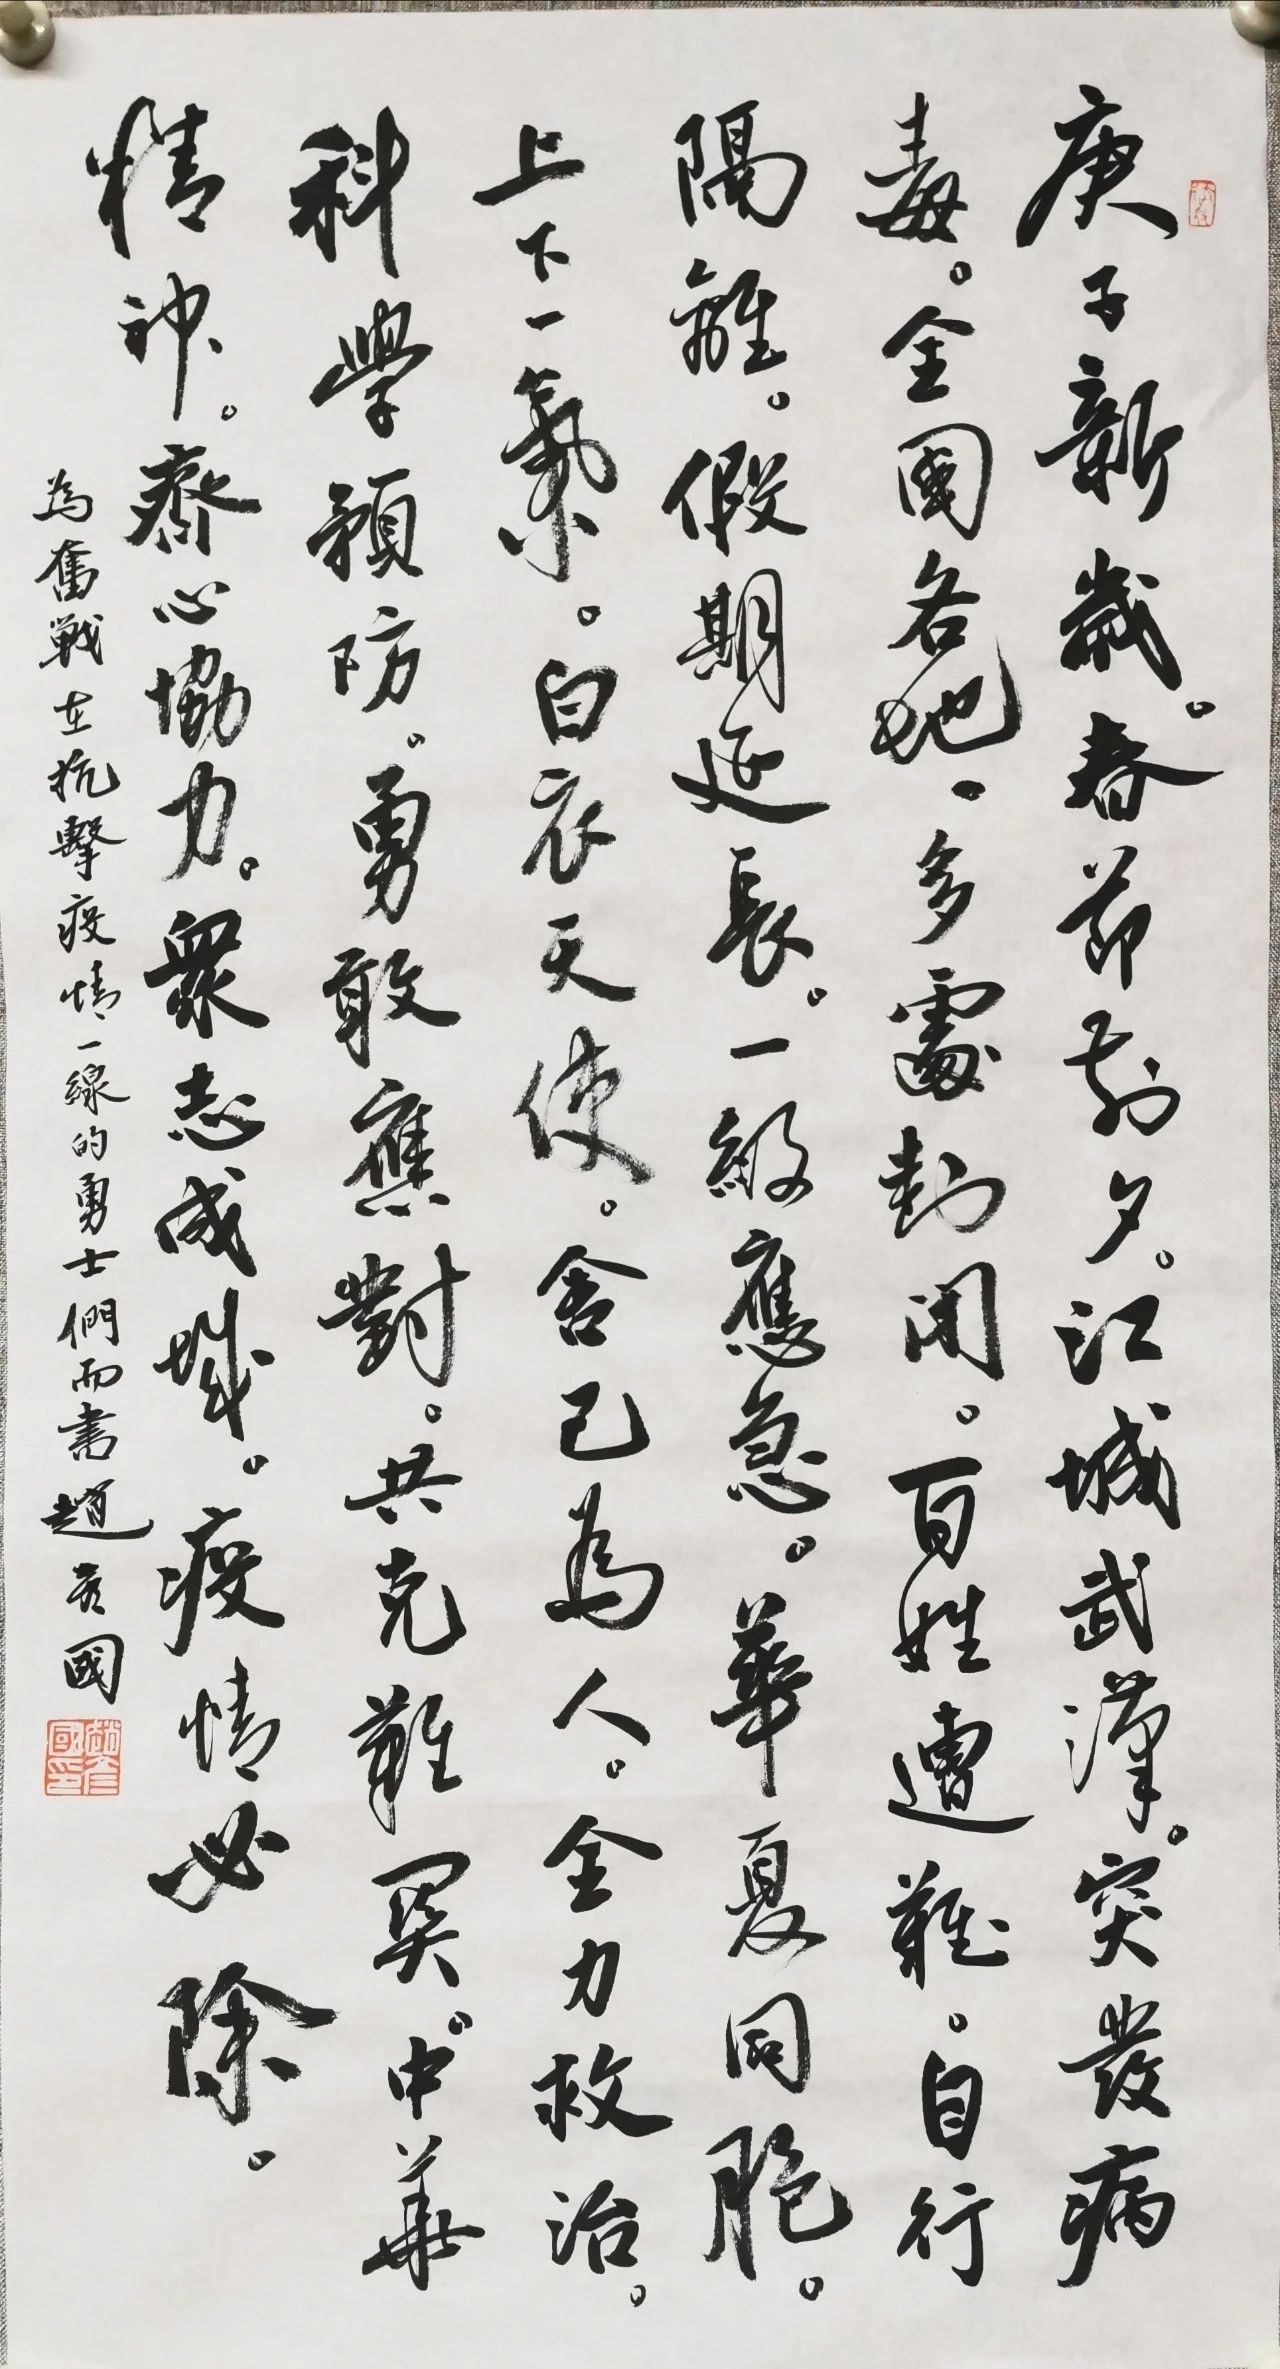 庚子新歲。春節前夕。江城武漢。突發病
毒。全國各地、多處封閉。百姓遭難。自行
隔離。假期延長。一級應急。華夏同胞。
上下一氣。白衣天使。舍己為人。全力救治。
科學預防。勇敢應對。共克難關。中華
精神。齊心協力。眾志成城。疫情必除。
為奮戰在抗擊疫情一線的勇士們而書趙彥國
趙彥國印